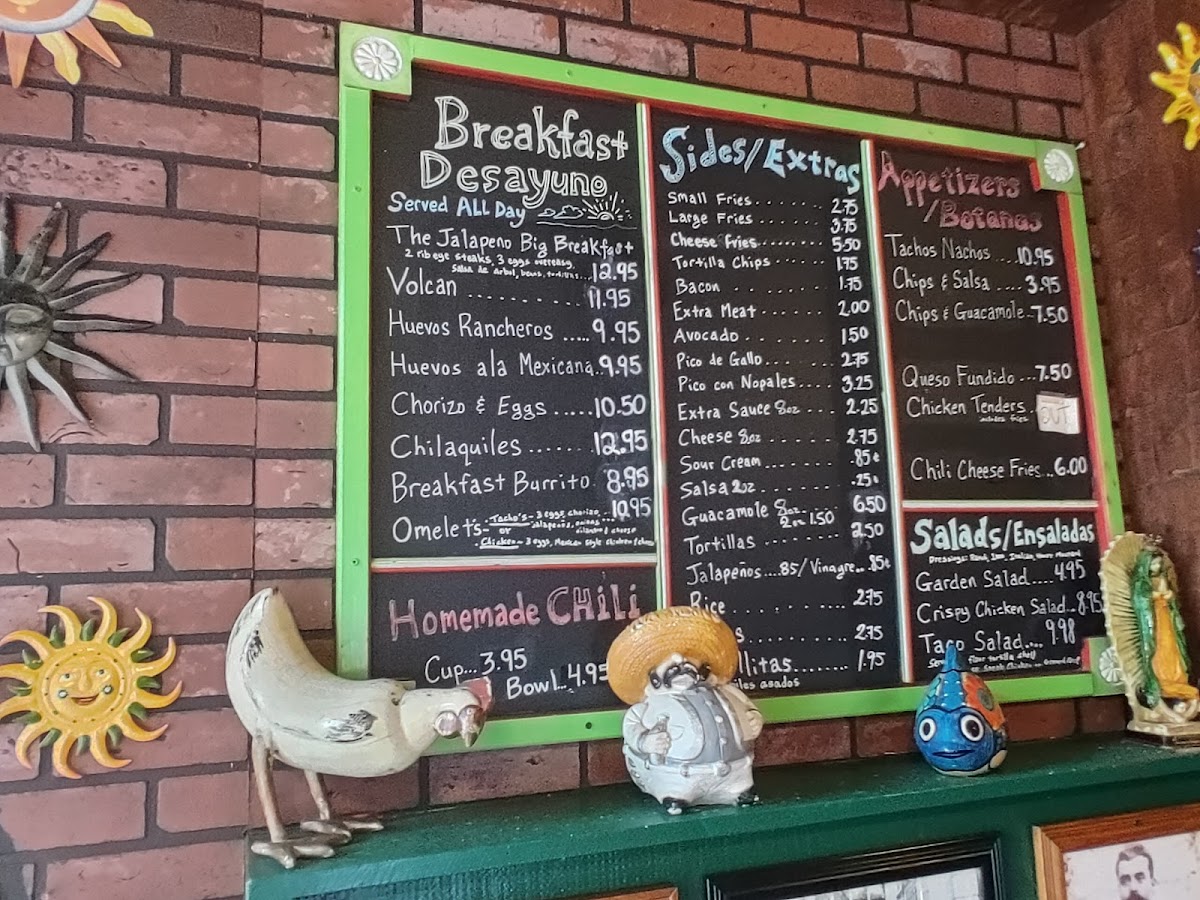 Breakfast
Desayuno
Served ALL Day
The Jalapeno Big Breakfast
2 rib eye steaks, 3 eggs overeasy,
Salsa de arbol, beans, tortillas...12.95
Volcan ........ 11.95
Huevos Rancheros ..... 9.95
Huevos ala Mexicana.. 9.95
Chorizo & Eggs .....10.50
Chilaquiles ....... 12.95
Breakfast Burrito 8.95
Omelets- Tacho's- 3 eggs, chorizo, ... 10.95
jalapeños, onions
or cilantro & cheese
Chicken- 3 eggs, Mexican Style Chicken &
Homemade CHiLi
Cup...3.95
Bowl..4.95
Sides/Extras
Small Fries....... 2.75
Large Fries ...... 3.75
Cheese Fries....... 5.50
Tortilla Chips ... 1.75
Bacon ........ 1.75
Extra Meat..... 2.00
Avocado...... 1.50
Pico de Gallo.... 2.75
Pico con Nopales.... 3.25
Extra Sauce 8oz ... 2.25
Cheese 8oz ....... 2.75
Sour Cream....... .85¢
Salsa 2oz ....... .25¢
Guacamole 8oz... 6.50
2oz 1.50
Tortillas ....... 2.50
Jalapeños....85/Vinagre... 85¢
Rice ......... 2.75
s ........ 2.75
llitas........ 1.95
iles asados
Appetizers
/Botanas
Tachos Nachos ....10.95
Chips & Salsa .... 3.95
Chips & Guacamole..7.50
Queso Fundido ...7.50
Chicken Tenders . OUT
includes fries
Chili Cheese Fries...6.00
Salads/Ensaladas
Dressings: Ranch, 1000, Italian, Honey Mustard
Garden Salad.... 4.95
Crispy Chicken Salad...8.95
Taco Salad.... 9.98
flour tortilla shell